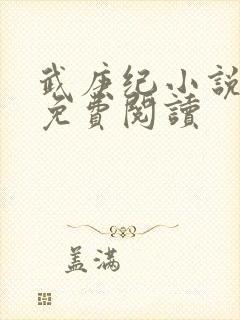 武庚纪小説
免費閱讀
盖满